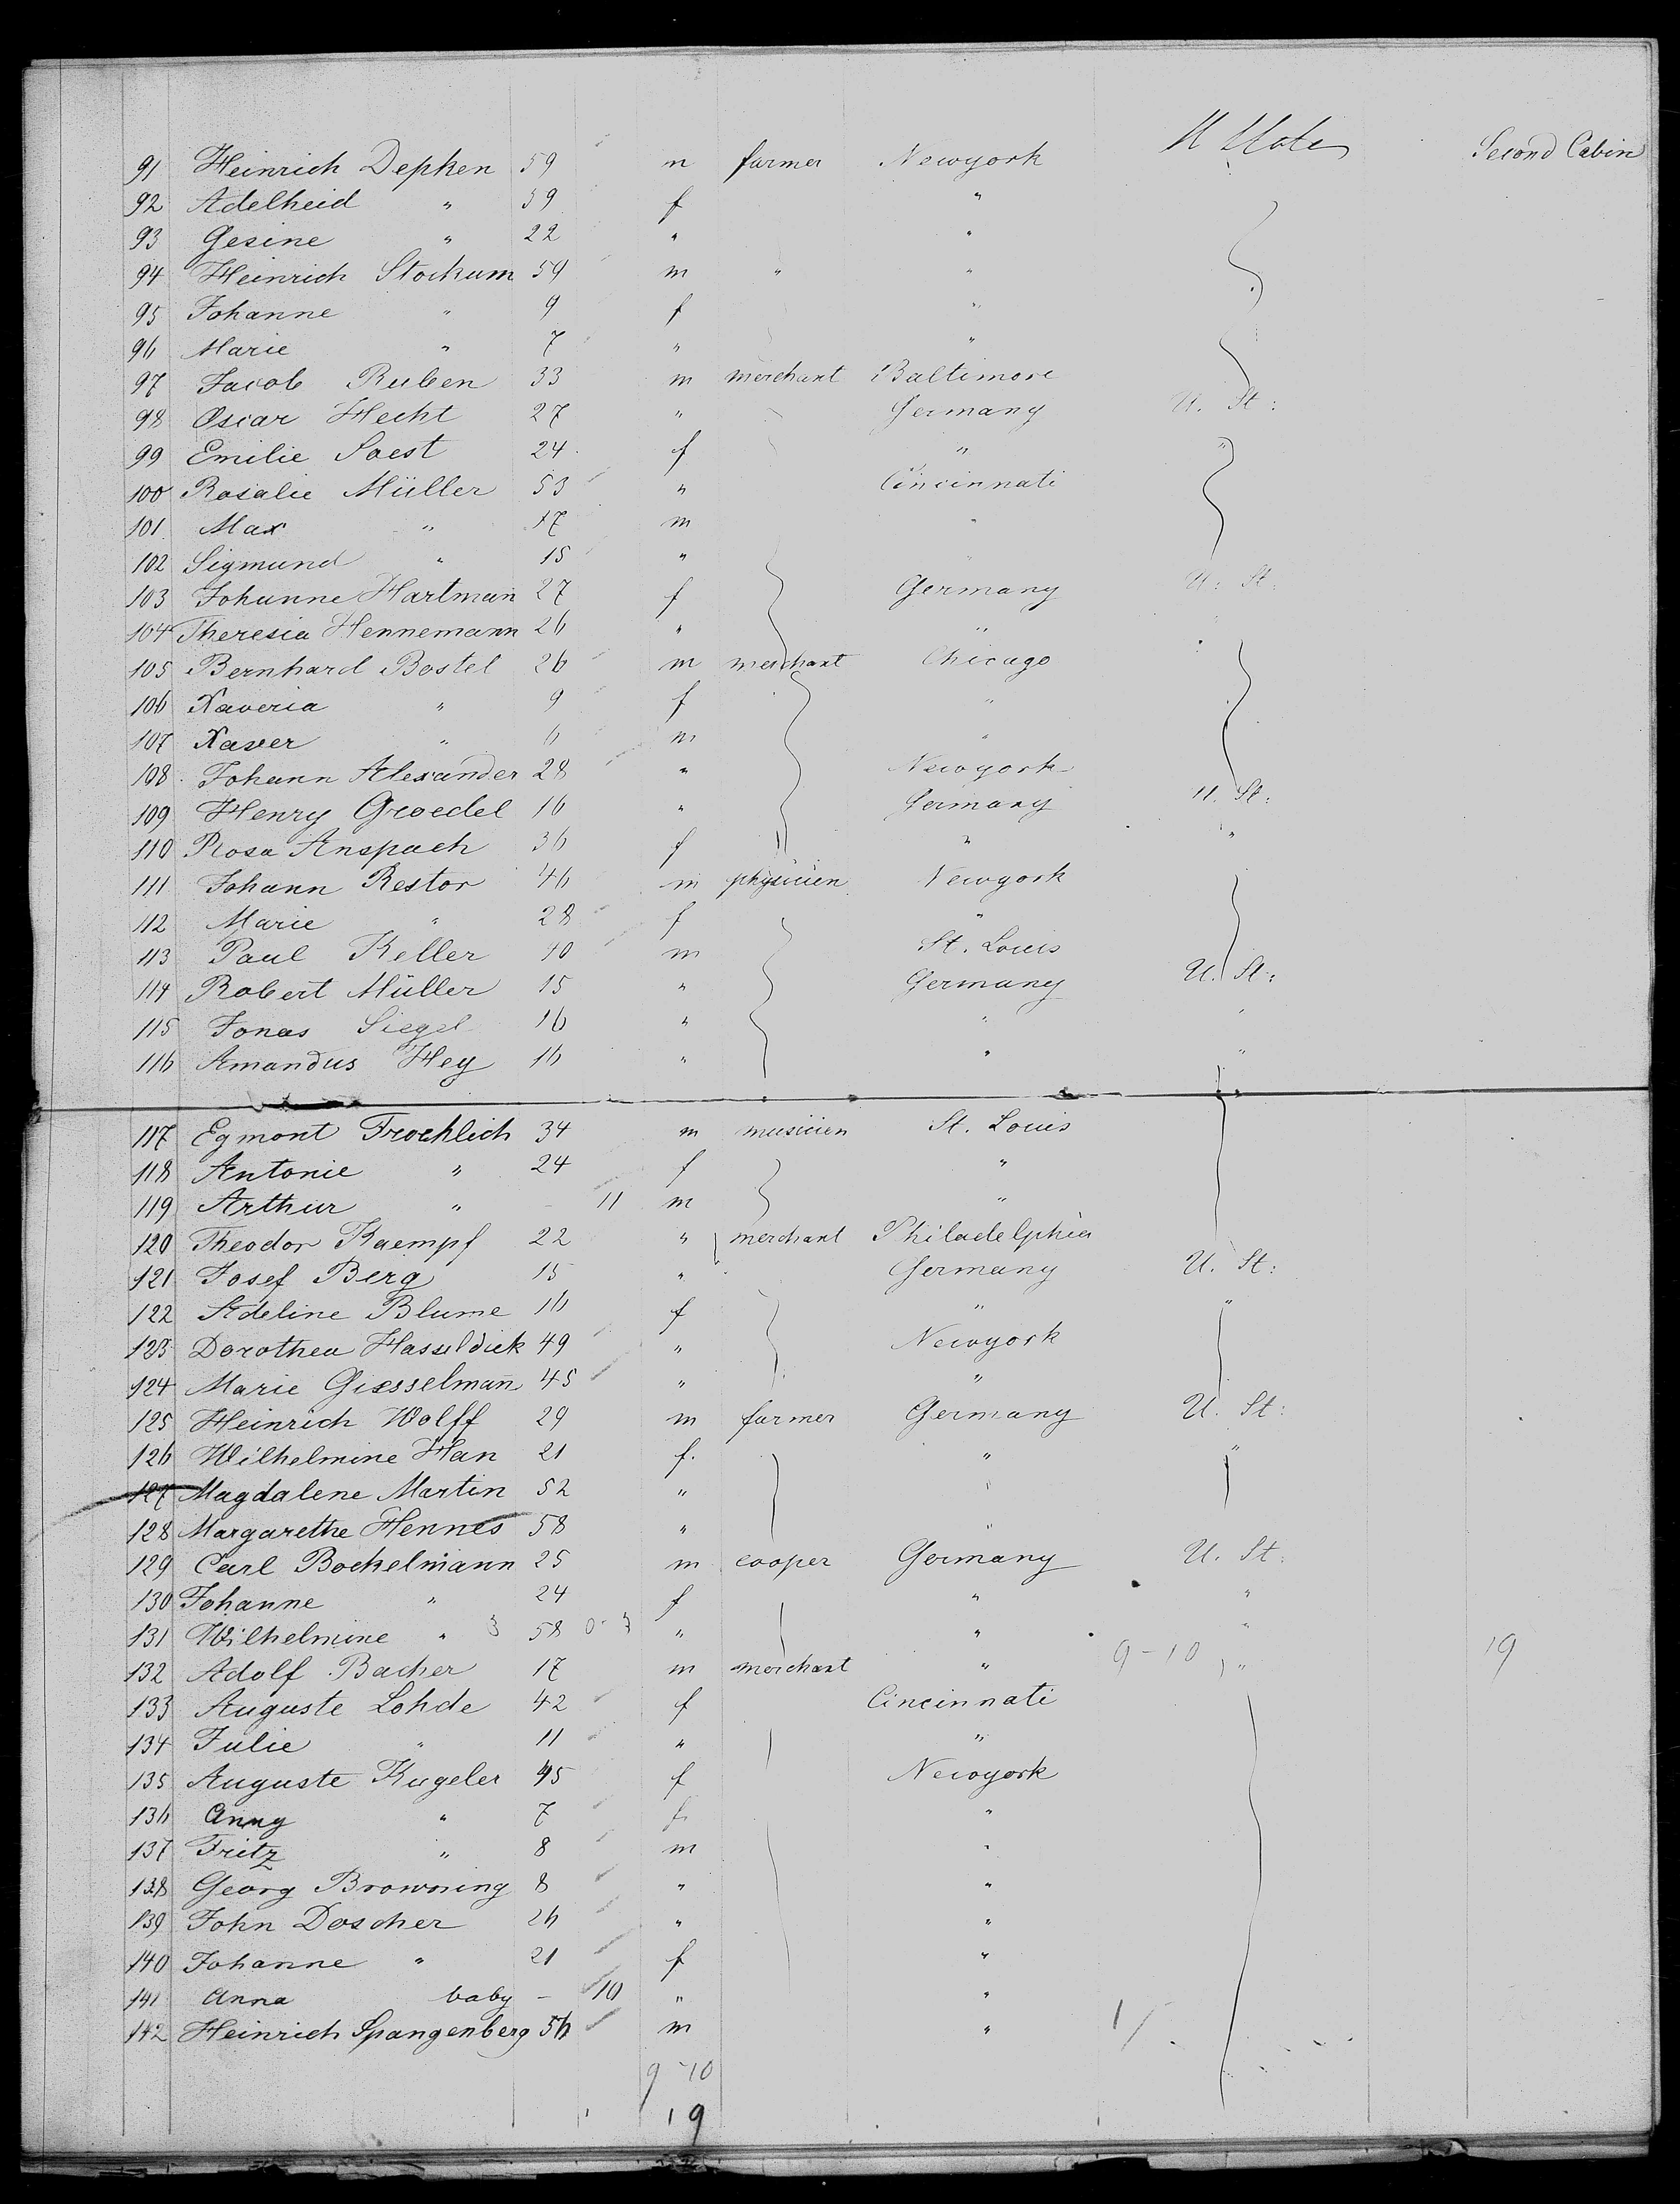 U States Second Cabin
91 Heinrich Depken 59 m farmer Newyork
92 Adelheid " 59 f "
93 Gesine " 22 " "
94 Heinrich Stockum 59 m " "
95 Johanne " 9 f "
96 Marie " 7 " "
97 Jacob Ruben 33 m merchant Baltimore
98 Oscar Hecht 27 " Germany U. St:
99 Emilie Soest 24 f " "
100 Rosalie Müller 53 " Cincinnati
101 Max " 17 m "
102 Sigmund " 15 " "
103 Johanne Hartman 27 f Germany U. St.
104 Theresia Hennemann 26 " "
105 Bernhard Bostel 26 m merchant Chicago
106 Xaveria " 9 f "
107 Xaver " 6 m "
108 Johann Alexander 28 " Newyork
109 Henry Groedel 16 " Germany U. St:
110 Rosa Anspach 36 f " "
111 Johann Restor 46 m physicien Newyork
112 Marie " 28 f "
113 Paul Keller 40 m St. Louis
114 Robert Müller 15 " Germany U. St:
115 Jonas Siegel 16 " " "
116 Amandus Hey 16 " " "
117 Egmont Froehlich 34 m musicien St. Louis
118 Antonie " 24 f "
119 Arthur " - 11 m "
120 Theodor Kaempf 22 " merchant Philadelphia
121 Josef Berg 15 " Germany U. St:
122 Adeline Blume 16 f " "
123 Dorothea Hasseldiek 49 " Newyork
124 Marie Giesselman 45 " "
125 Heinrich Wolff 29 m farmer Germany U. St:
126 Wilhelmine Han 21 f. " "
127 Magdalene Martin 52 " "
128 Margarethe Hennes 58 " "
129 Carl Bockelmann 25 m cooper Germany U. St:
130 Johanne " 24 f " "
131 Wilhelmine " 58 " " "
132 Adolf Bacher 17 m merchant " 9-10 " 19
133 Auguste Lohde 42 f Cincinnati
134 Julie " 11 " "
135 Auguste Kugeler 45 f Newyork
136 Anny " 7 f "
137 Fritz " 8 m "
138 Georg Browning 8 " "
139 John Doscher 26 " "
140 Johanne " 21 f "
141 Anna baby - 10 " "
142 Heinrich Spangenberg 56 m "
9-10
19